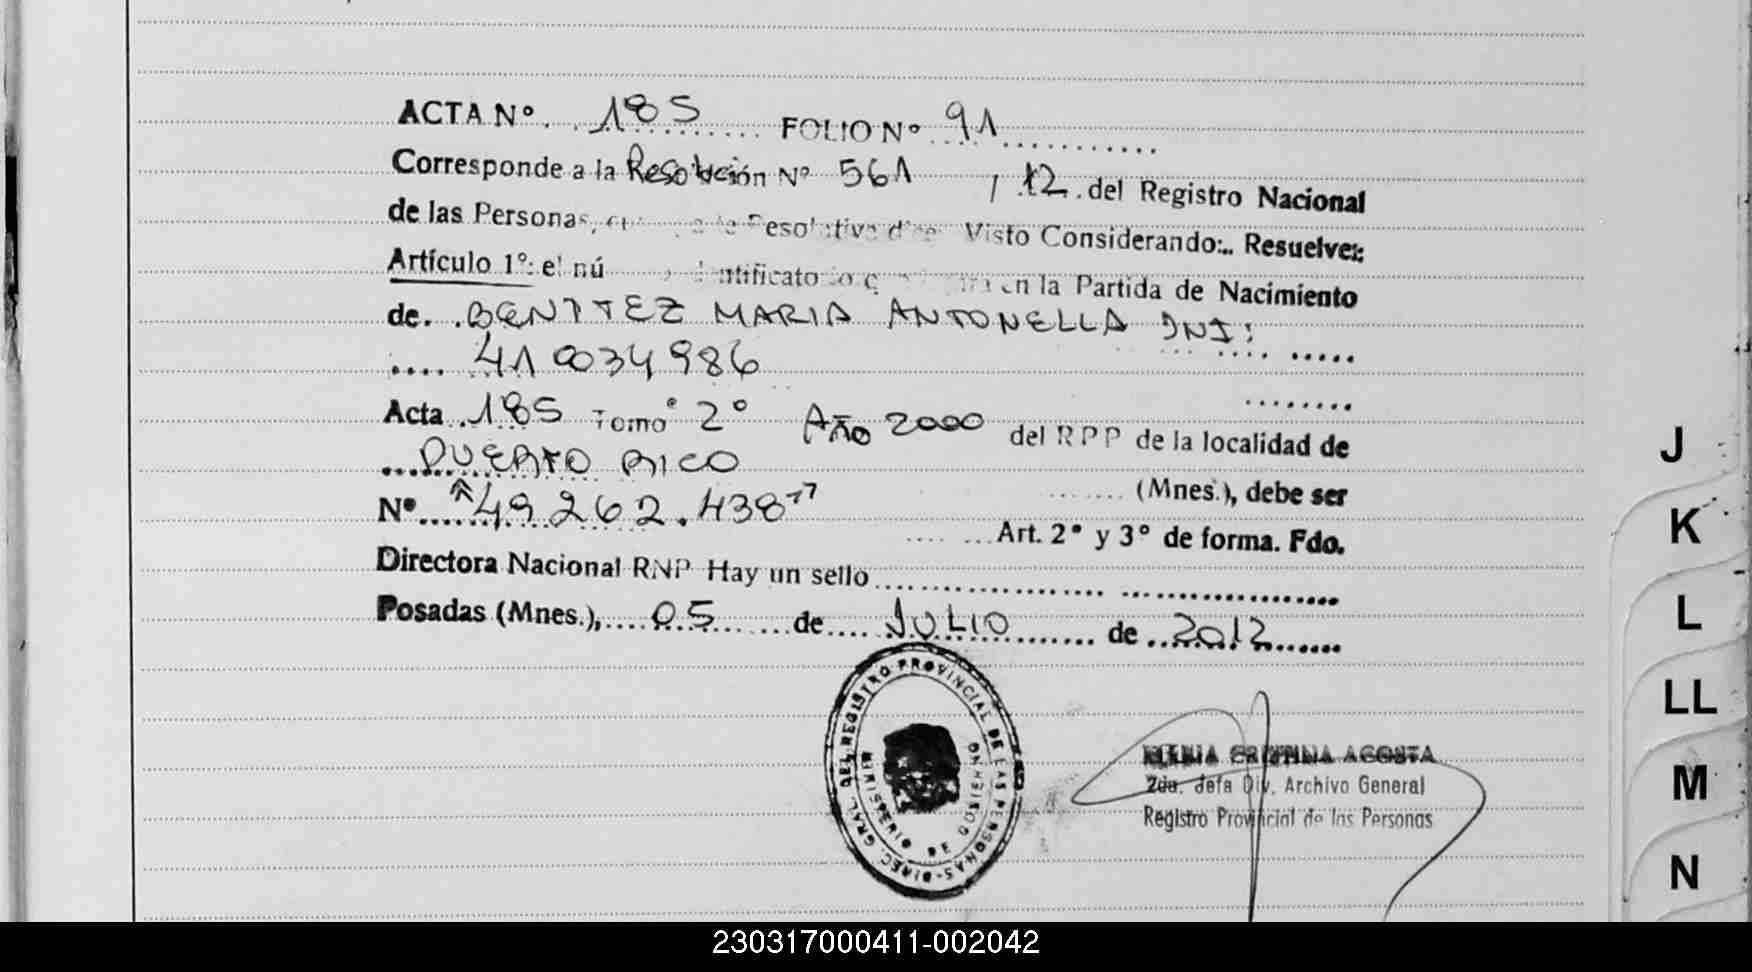 ACTA Nº. 185 FOLIO Nº 91
Corresponde a la Resolución Nº 561 / 12 del Registro Nacional
de las Personas, Resolutiva dice: Visto Considerando:.. Resuelve:
Artículo 1º: el en la Partida de Nacimiento
de. BENITEZ MARIA ANTONELLA DNI:
Acta 185 Tomo 2º Año 2000 del RPP de la localidad de
PUERTO RICO (Mnes.), debe ser
Nº 49262.438" Art. 2º y 3º de forma. Fdo.
Directora Nacional RNP Hay un sello
Posadas (Mnes.), 05 de JULIO de 2012
DIREC. GRAL. DEL REGISTRO PROVINCIAL DE LAS PERSONAS
MINISTERIO DE GOBIERNO
CRISTINA ACOSTA
2da. Jefa Div. Archivo General
Registro Provincial de las Personas
J
K
L
LL
M
N
230317000411-002042